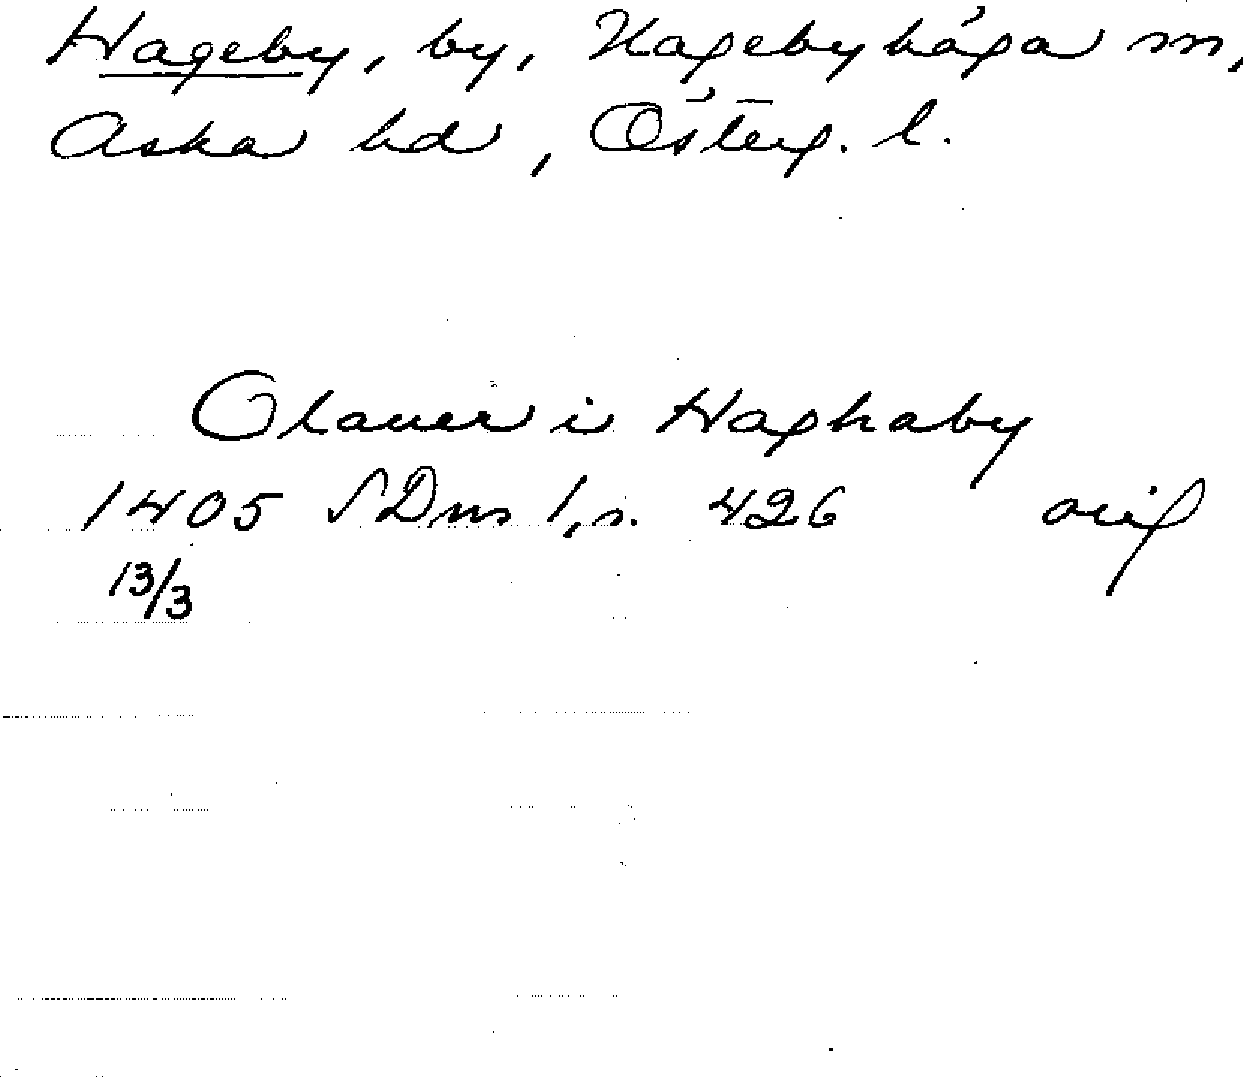 Hageby, by, Hagebyhöga sn,
Aska hd, Österg. l.
Olauer i Haghaby
1405 SDns 1, s. 426 orig
13/3